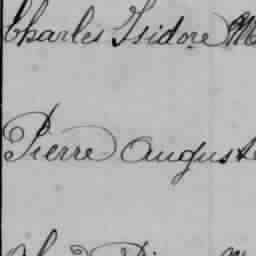 Charles Isidore M
Pierre August